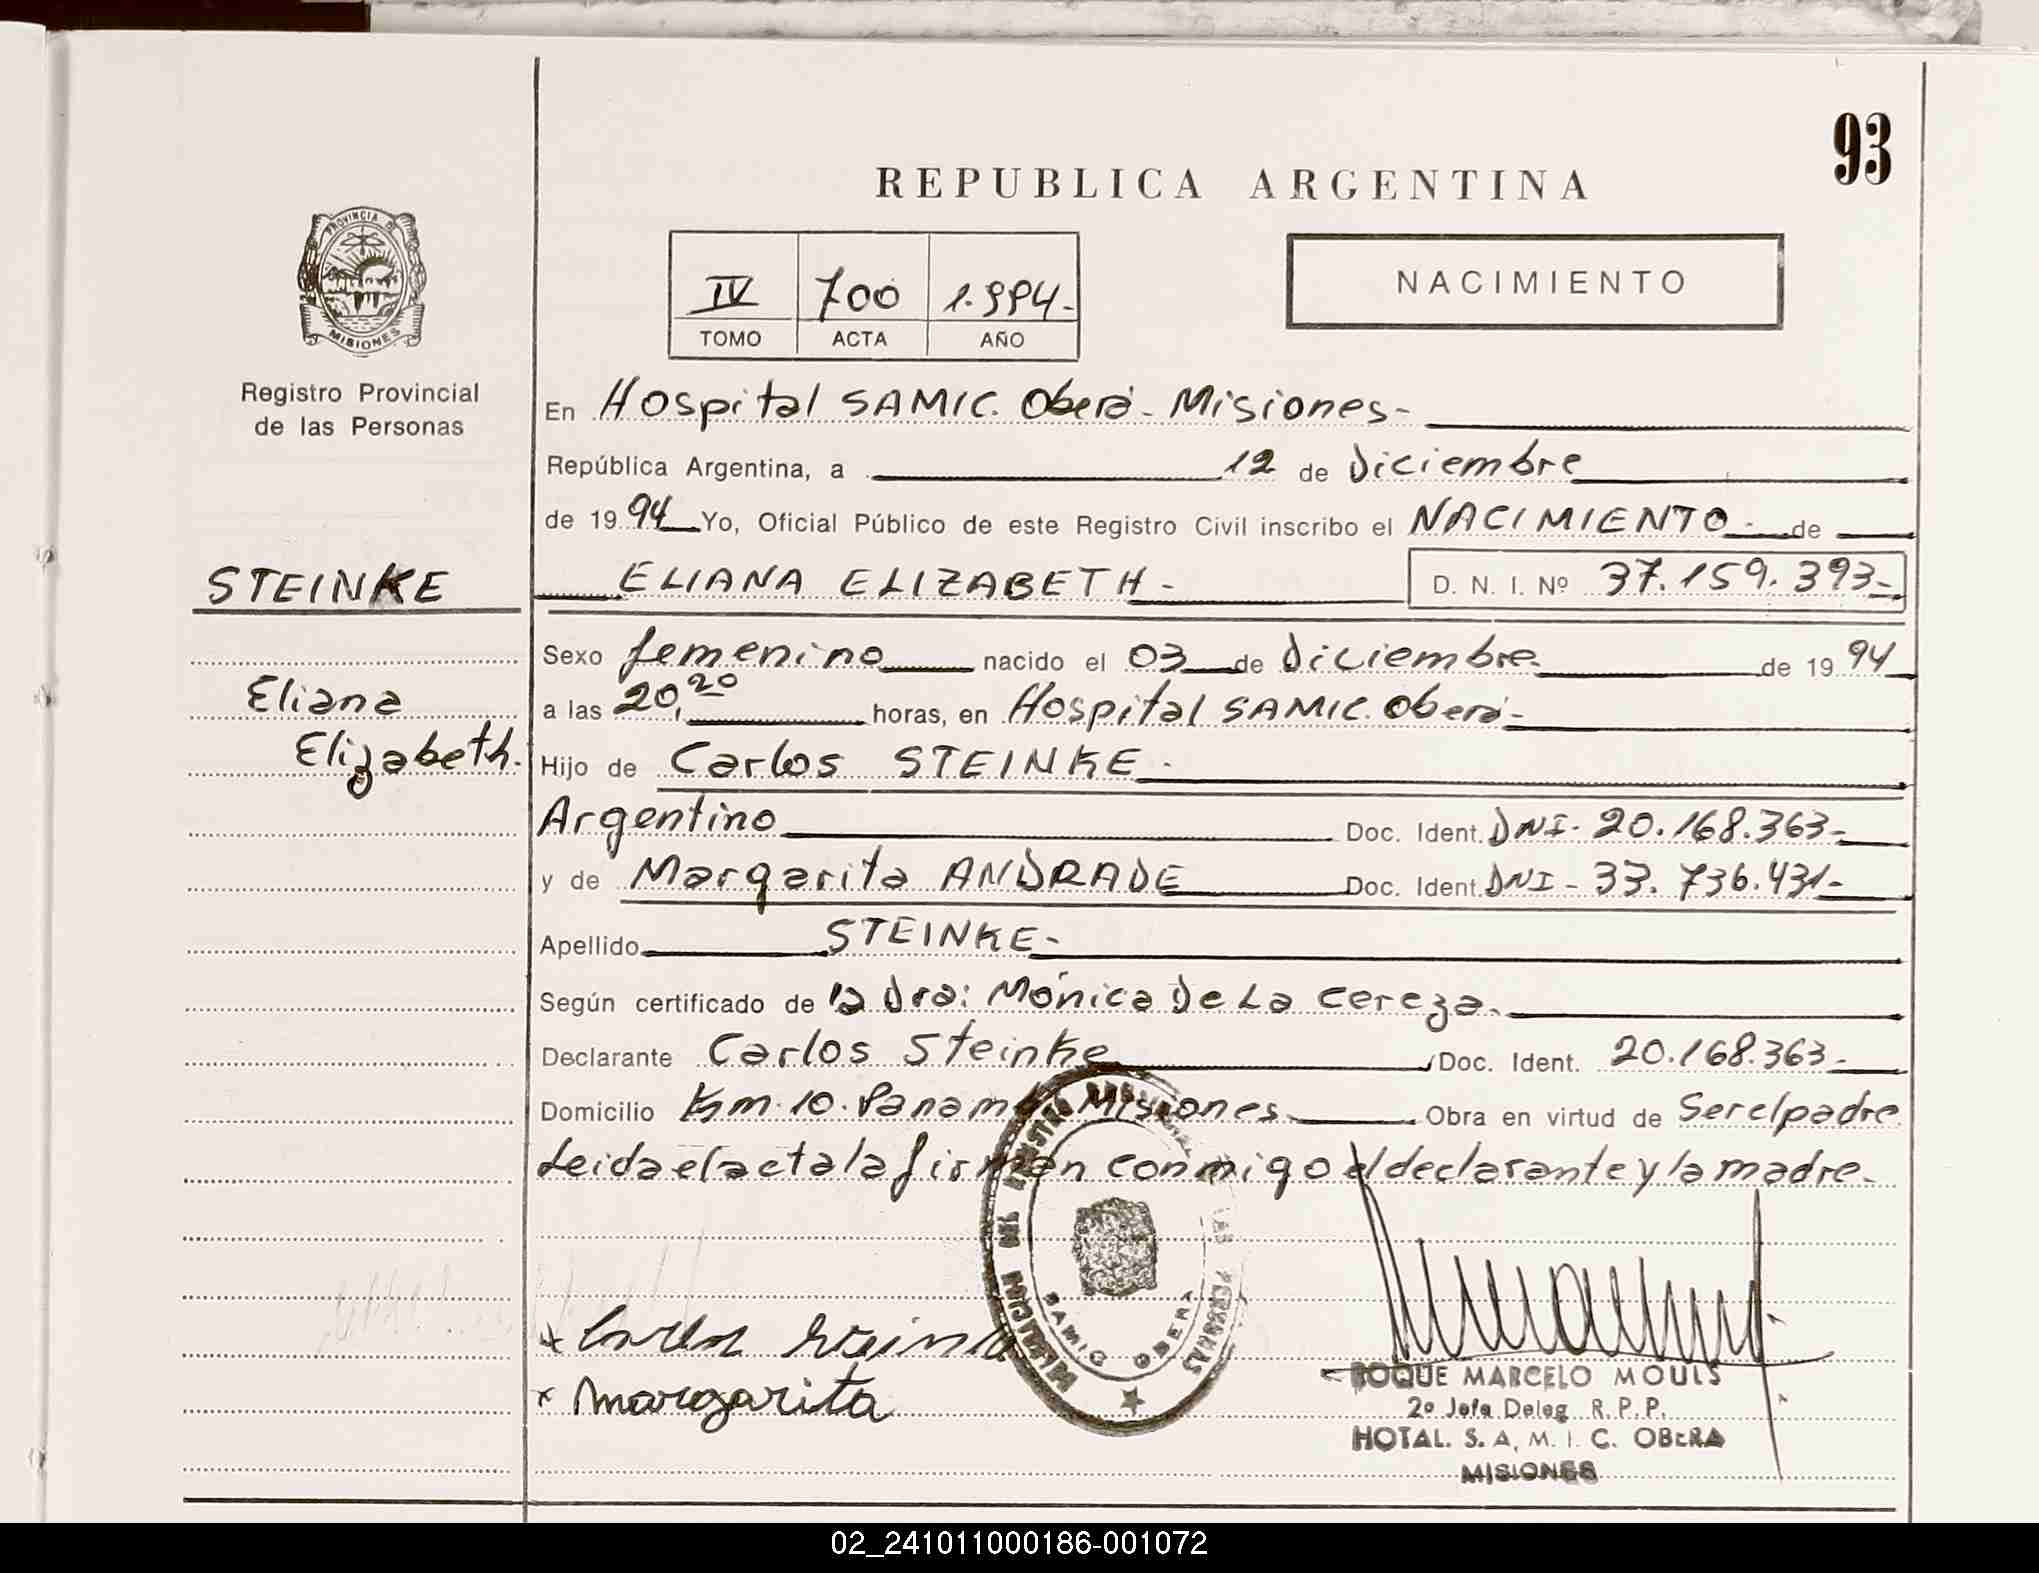 93
REPUBLICA ARGENTINA
PROVINCIA DE
MISIONES
IV 700 1.994-
TOMO ACTA AÑO
NACIMIENTO
Registro Provincial
de las Personas
En Hospital SAMIC. Oberá - Misiones-
República Argentina, a 12 de Diciembre
de 1994 Yo, Oficial Público de este Registro Civil inscribo el NACIMIENTO - de
STEINKE
ELIANA ELIZABETH - D. N. I. Nº 37.159.393-
Sexo femenino nacido el 03 de Diciembre de 1994
Eliana
a las 20,20 horas, en Hospital SAMIC. Oberá-
Elizabeth.
Hijo de Carlos STEINKE -
Argentino Doc. Ident. DNI- 20.168.363-
y de Margarita ANDRADE Doc. Ident. DNI - 33.736.431-
Apellido STEINKE-
Según certificado de la Dra: Mónica De La Cereza.
Declarante Carlos Steinke Doc. Ident. 20.168.363-
Domicilio Km. 10. Panambí Misiones Obra en virtud de Ser el padre
Leida el acta la firman conmigo el declarante y la madre.
SAMIC OBERA
x Carlos Steinke
x Margarita
ROQUE MARCELO MOULS
2º Jefe Deleg R.P.P.
HOTAL. S. A. M. I. C. OBERA
MISIONES
02_241011000186-001072